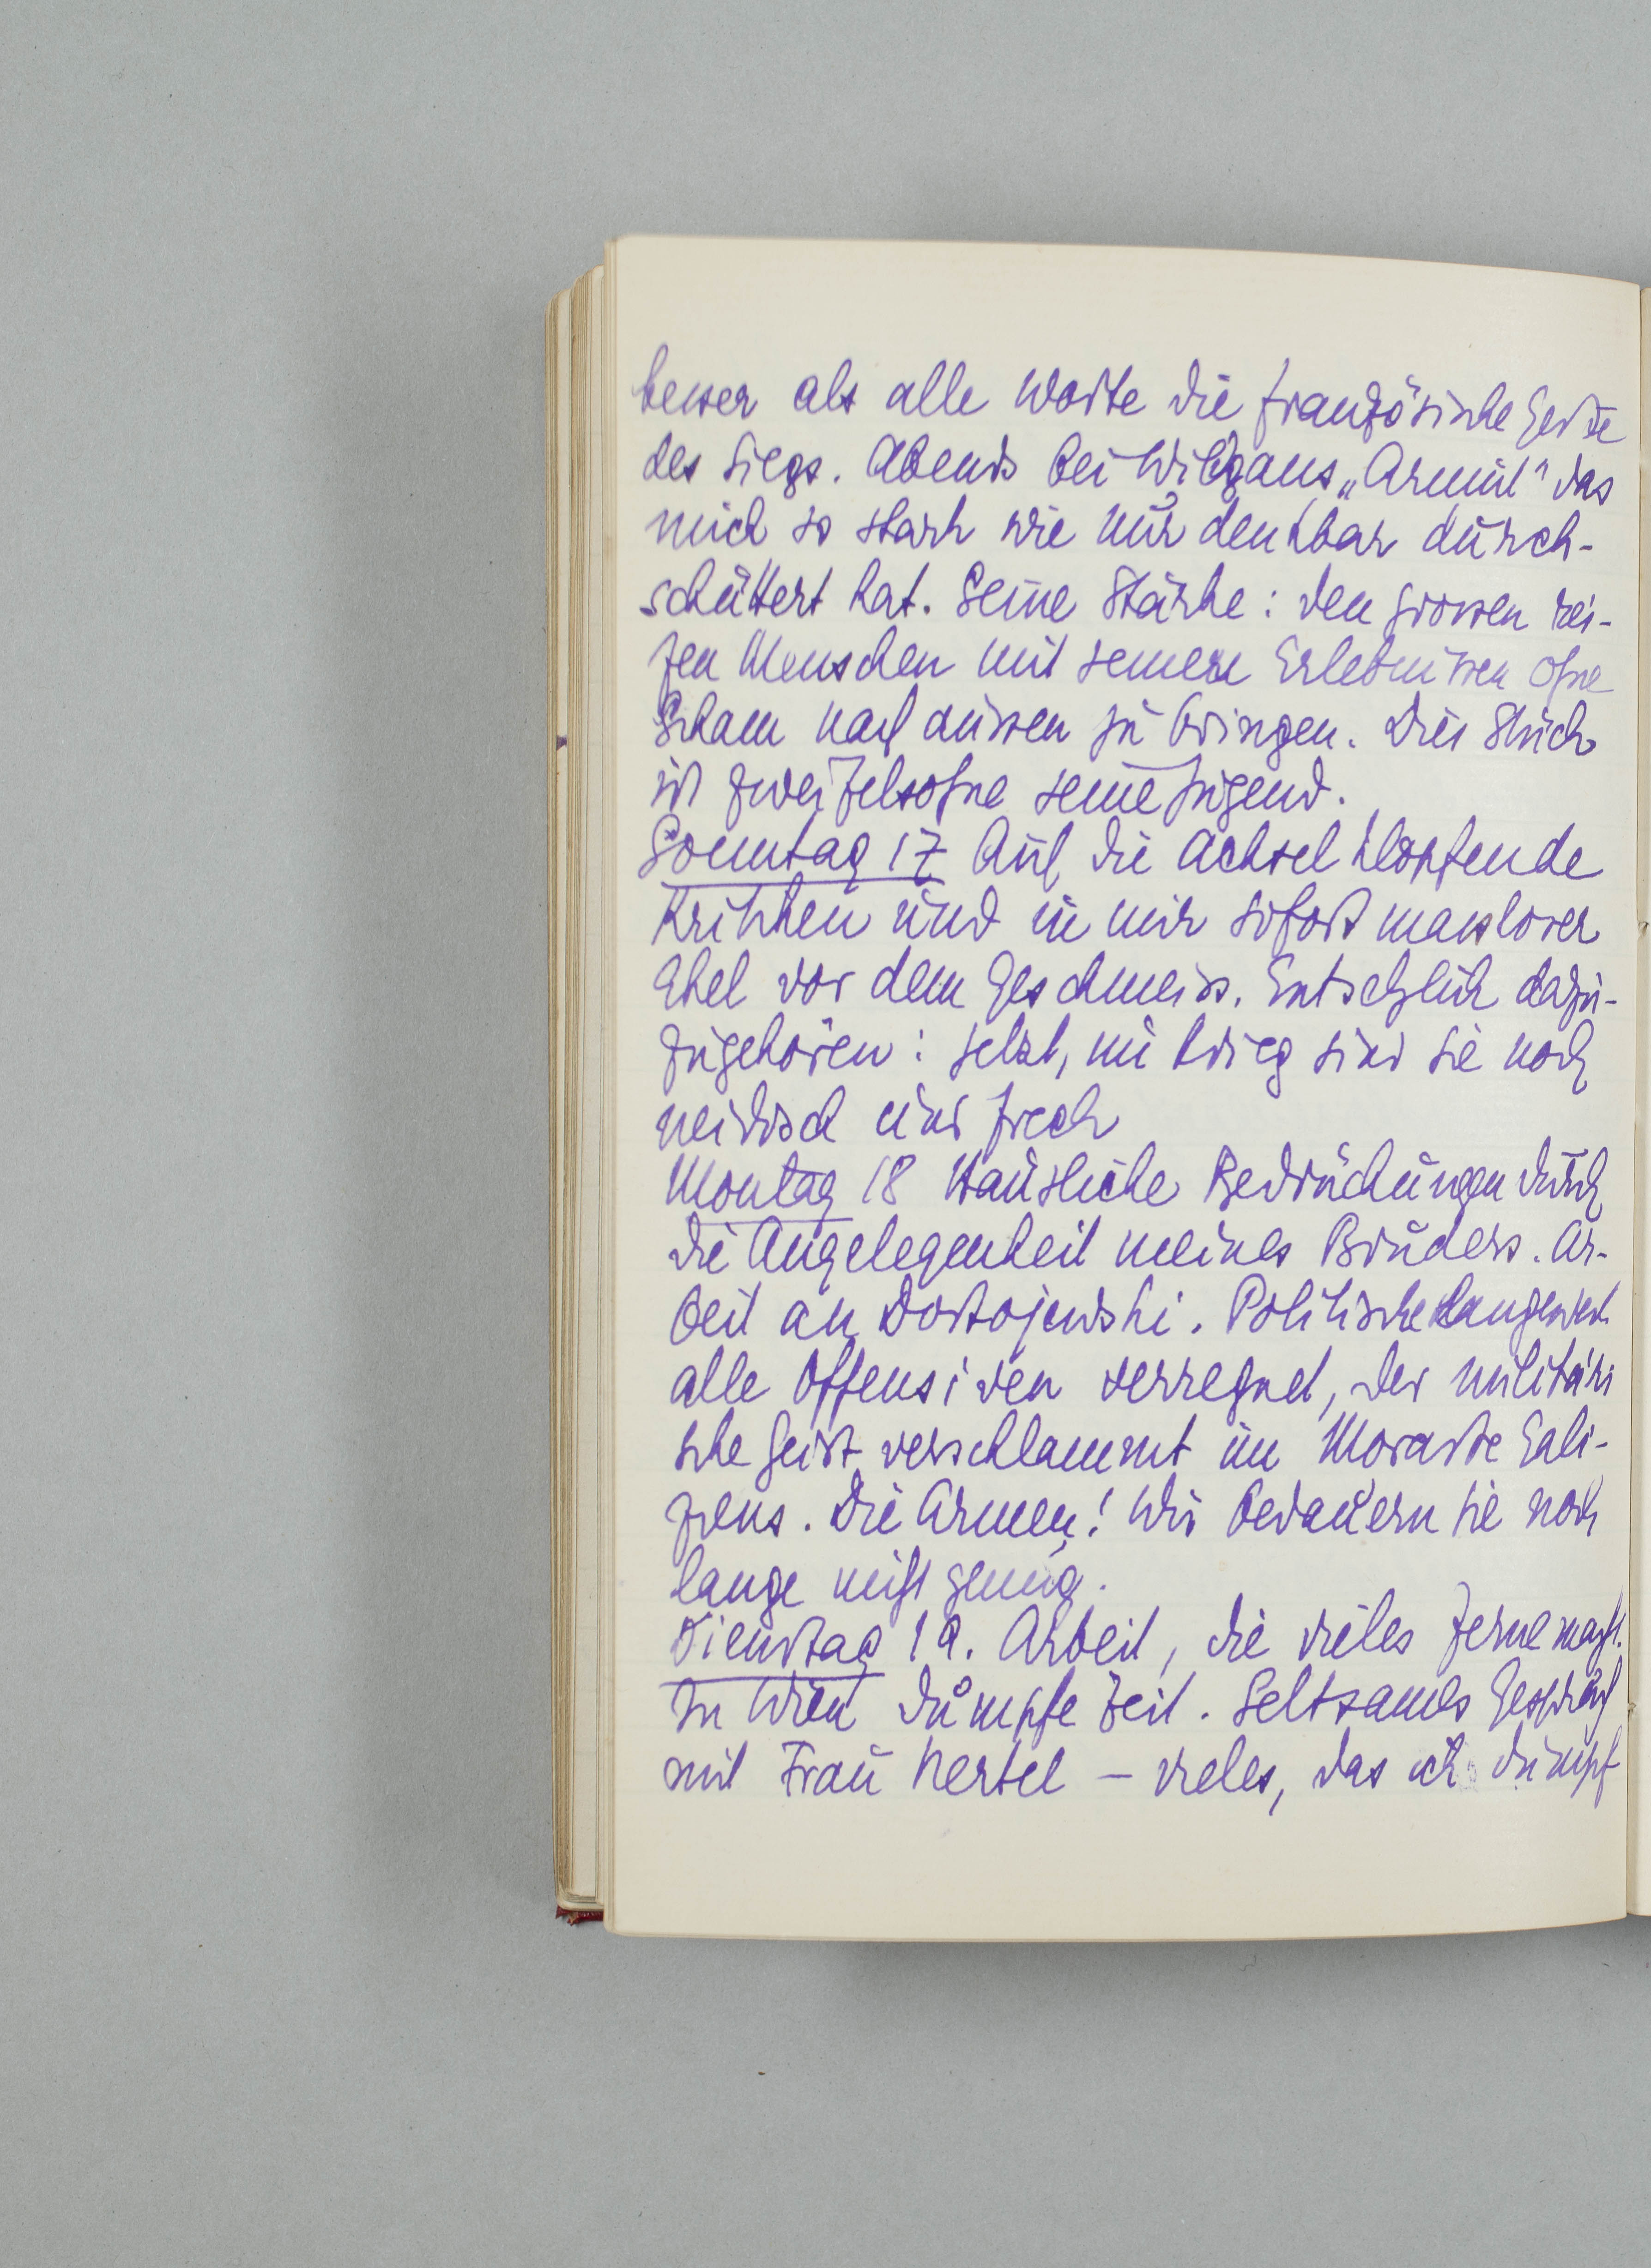 besser als alle Worte die französische Geste
des Siegs. Abends bei Wildgans „Armut" das
mich so stark wie nur denkbar durch-
schüttert hat. Seine Stärke: den grossen rei-
fen Menschen mit seinen Erlebnissen ohne
Scham nach aussen zu bringen. Dies Stück
ist zweifelsohne seine Jugend.
Sonntag 17 Auf die Achsel klopfende
Kritiken und in mir sofort massloser
Ekel vor dem Geschmeiss. Entsetzlich dazu-
zugehören: jetzt, im Krieg sind sie noch
neidisch und frech
Montag 18 Häusliche Bedrückungen durch
die Angelegenheit meines Bruders. Ar-
beit an Dostojewski. Politische
alle Offensiven verregnet, der militäri
sche Geist verschlammt im Moraste Gali-
ziens. Die Armen! Wir bedauern sie noch
lange nicht genug.
Dienstag 19. Arbeit, die vieles ferne macht.
In Wien dumpfe Zeit. Seltsames Gespräch
mit Frau Mertel – vieles, das ich dumpf